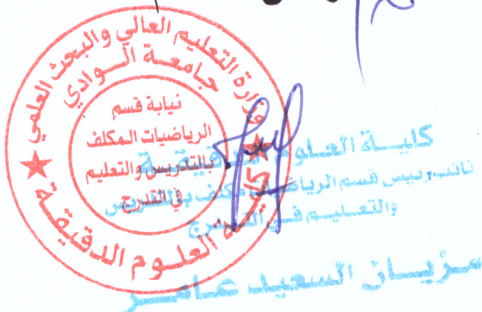 وزارة التعليم العالي والبحث العلمي
جامعة الوادي
نيابة قسم
الرياضيات المكلف
بالتدريس والتعليم
في التدرج
كلية العلوم الدقيقة
كلية العلوم الدقيقة
نائب رئيس قسم الرياضيات مكلف بالتدريس
والتعليم في التدرج
مزيان السعيد عامر